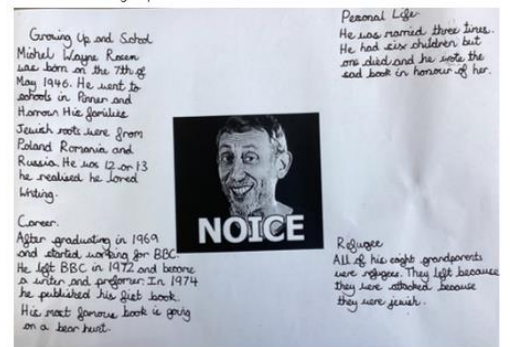 Growing Up and School
Michel Wayne Rosen
was born on the 7th of
May 1946. He went to
schools in Pinner and
Harrow His families
Jewish roots were from
Poland Romania and
Russia. He was 12 or 13
he realised he loved
writing.
Career.
After graduating in 1969
and started working for BBC.
He left BBC in 1972 and became
a writer and profomer. In 1974
he published his fist book.
His most famous book is going
on a bear hunt.
NOICE
Personal Life
He was married three times.
He had six children but
one died and he wrote the
sad book in honour of her.
Refugee
All of his eaght grandparents
were refugees. They left because
they were attacked because
they were jewish.